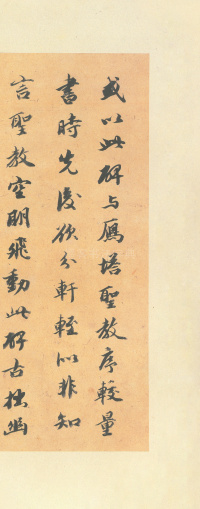 或以此碑与鴈塔聖教序較量
書時先後欲分軒輊似非知
言聖教空明飛動此碑古拙幽